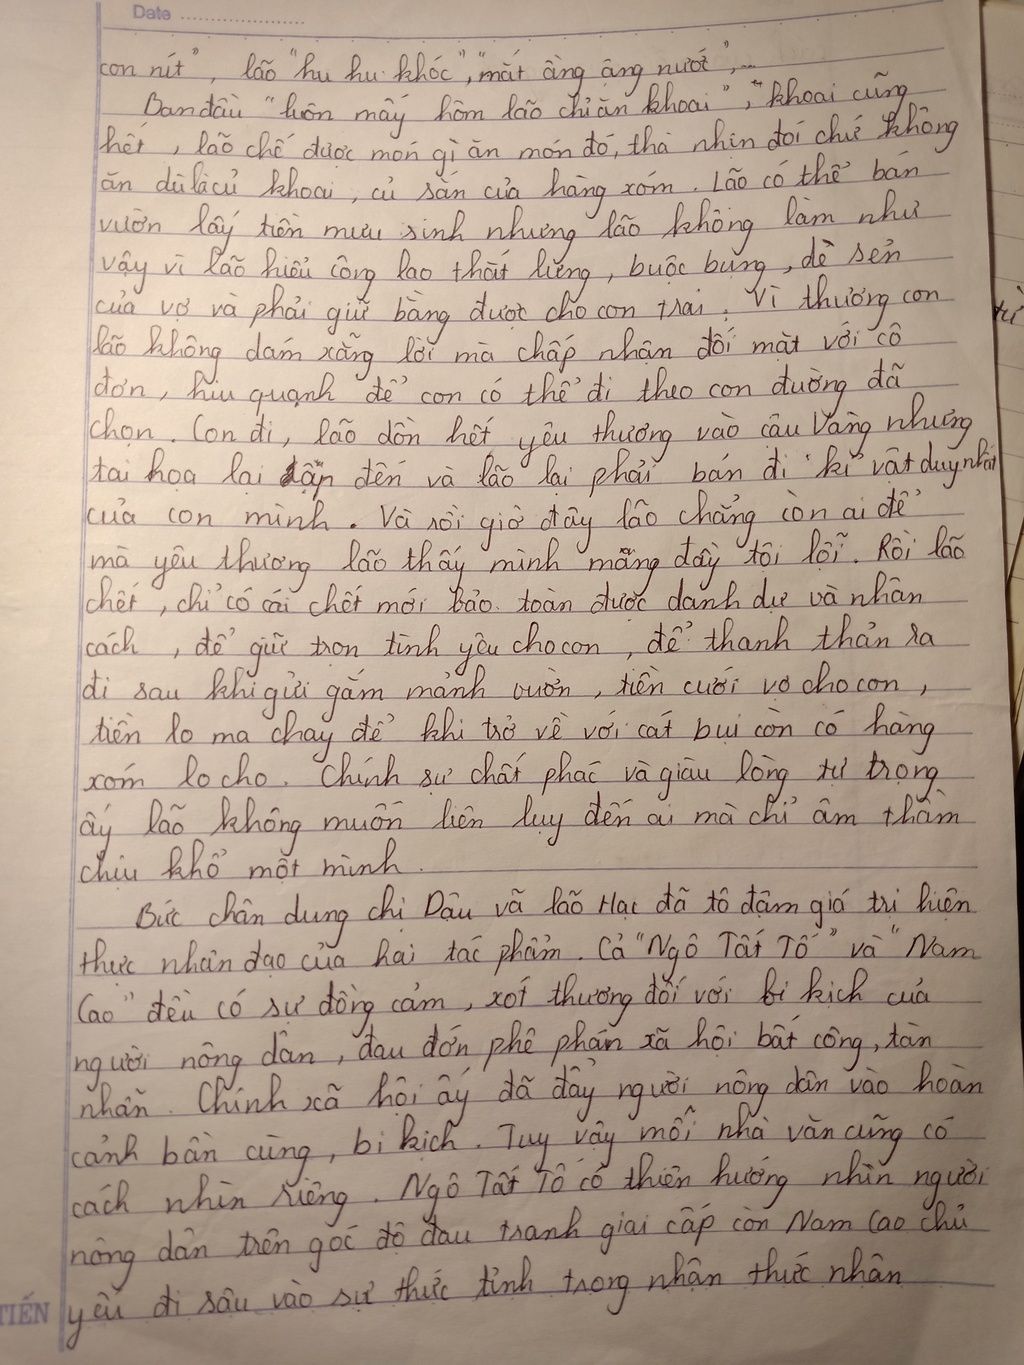 Date
con nít", lão "hu hu khóc", "mắt ầng ậng nước",...
Ban đầu "luôn mấy hôm lão chỉ ăn khoai", "khoai cũng
hết, lão chế được món gì ăn món đó, thà nhịn đói chứ không
ăn dù là củ khoai, củ sắn của hàng xóm. Lão có thể bán
vườn lấy tiền mưu sinh nhưng lão không làm như
vậy vì lão hiểu công lao thắt lưng, buộc bụng, dè sẻn
của vợ và phải giữ bằng được cho con trai. Vì thương con
lão không dám xẵng lời mà chấp nhận đối mặt với cô
đơn, hiu quạnh để con có thể đi theo con đường đã
chọn. Con đi, lão dồn hết yêu thương vào cậu Vàng nhưng
tai họa lại ập đến và lão lại phải bán đi kỉ vật duy nhất
của con mình. Và rồi giờ đây lão chẳng còn ai để
mà yêu thương lão thấy mình mang đầy tội lỗi. Rồi lão
chết, chỉ có cái chết mới bảo toàn được danh dự và nhân
cách, để giữ trọn tình yêu cho con, để thanh thản ra
đi sau khi gửi gắm mảnh vườn, tiền cưới vợ cho con,
tiền lo ma chay để khi trở về với cát bụi còn có hàng
xóm lo cho. Chính sự chất phác và giàu lòng tự trọng
ấy lão không muốn liên lụy đến ai mà chỉ âm thầm
chịu khổ một mình.
Bức chân dung chị Dậu và lão Hạc đã tô đậm giá trị hiện
thực nhân đạo của hai tác phẩm. Cả "Ngô Tất Tố" và "Nam
Cao" đều có sự đồng cảm, xót thương đối với bi kịch của
người nông dân, đau đớn phê phán xã hội bất công, tàn
nhẫn. Chính xã hội ấy đã đẩy người nông dân vào hoàn
cảnh bần cùng, bi kịch. Tuy vậy mỗi nhà văn cũng có
cách nhìn riêng. Ngô Tất Tố có thiên hướng nhìn người
nông dân trên góc độ đấu tranh giai cấp còn Nam Cao chủ
yếu đi sâu vào sự thức tỉnh trong nhận thức nhân
TIẾN
từ